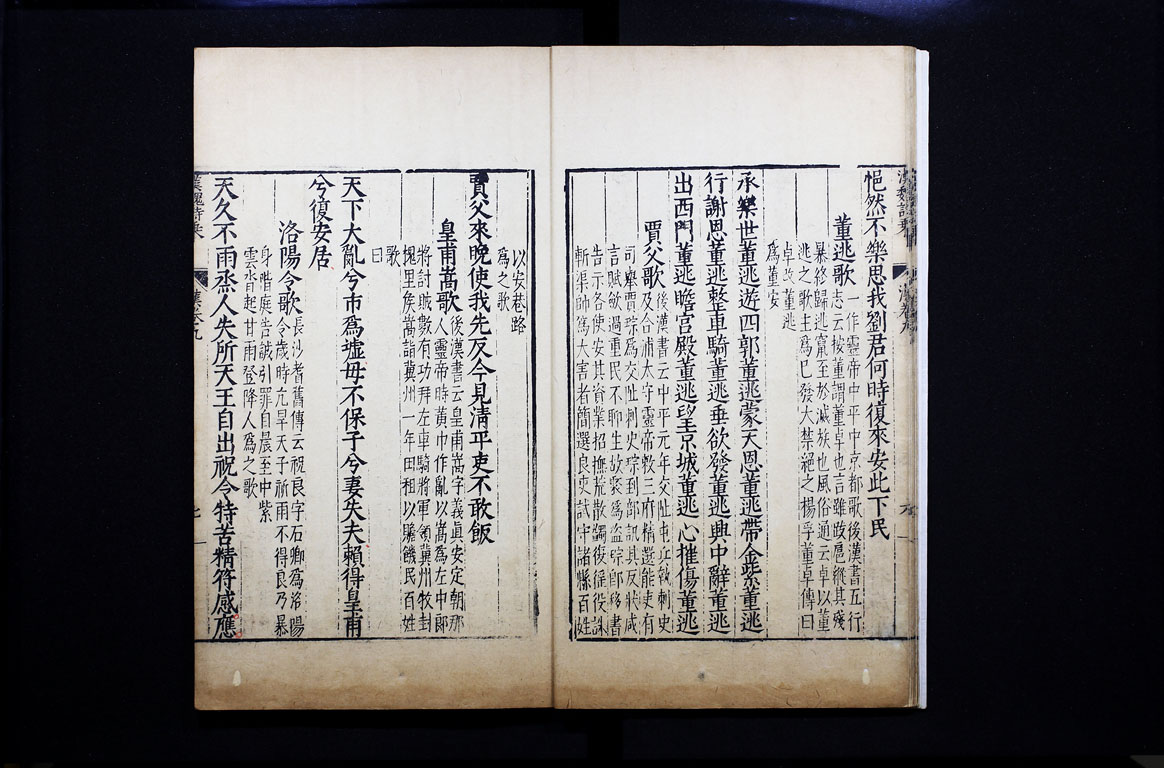 悒然不樂思我劉君何時復來安此下民
董逃歌
一作靈帝中平中京都歌後漢書五行
志云按董謂董卓也言雖跋扈縱其殘
暴終歸逃竄至於滅族也風俗通云卓以董
逃之歌主爲巳發大禁絕之楊孚董卓傳曰
卓改董逃
爲董安
承樂世董逃遊四郭董逃蒙天恩董逃帶金紫董逃
行謝恩董逃整車騎董逃垂欲發董逃與中辭董逃
出西門董逃瞻宮殿董逃望京城董逃心摧傷董逃
賈父歌
後漢書云中平元年交阯屯兵執刺史
及合浦太守靈帝敕三府精選能吏有
司舉賈琮爲交阯刺史琮到部訊其反狀咸
言賦斂過重民不聊生故聚爲盜琮卽移書
告示各使安其資業招撫荒散蠲復徭役誅
斬渠帥爲大害者簡選良吏試守諸縣百姓
以安巷路
爲之歌
賈父來晚使我先反今見清平吏不敢飯
皇甫嵩歌
後漢書云皇甫嵩字義眞安定朝那
人靈帝時黃巾作亂以嵩爲左中郞
將討賊數有功拜左車騎將軍領冀州牧封
槐里侯嵩請冀州一年田租以贍饑民百姓
歌
曰
天下大亂兮市爲墟母不保子兮妻失夫賴得皇甫
兮復安居
洛陽令歌
長沙耆舊傳云祝良字石卿爲洛陽
令歲時亢旱天子祈雨不得良乃暴
身階庭告誠引罪自晨至中紫
雲沓起甘雨登降人爲之歌
天久不雨烝人失所天王自出祝令特苦精符感應
漢魏詩乘
漢卷九